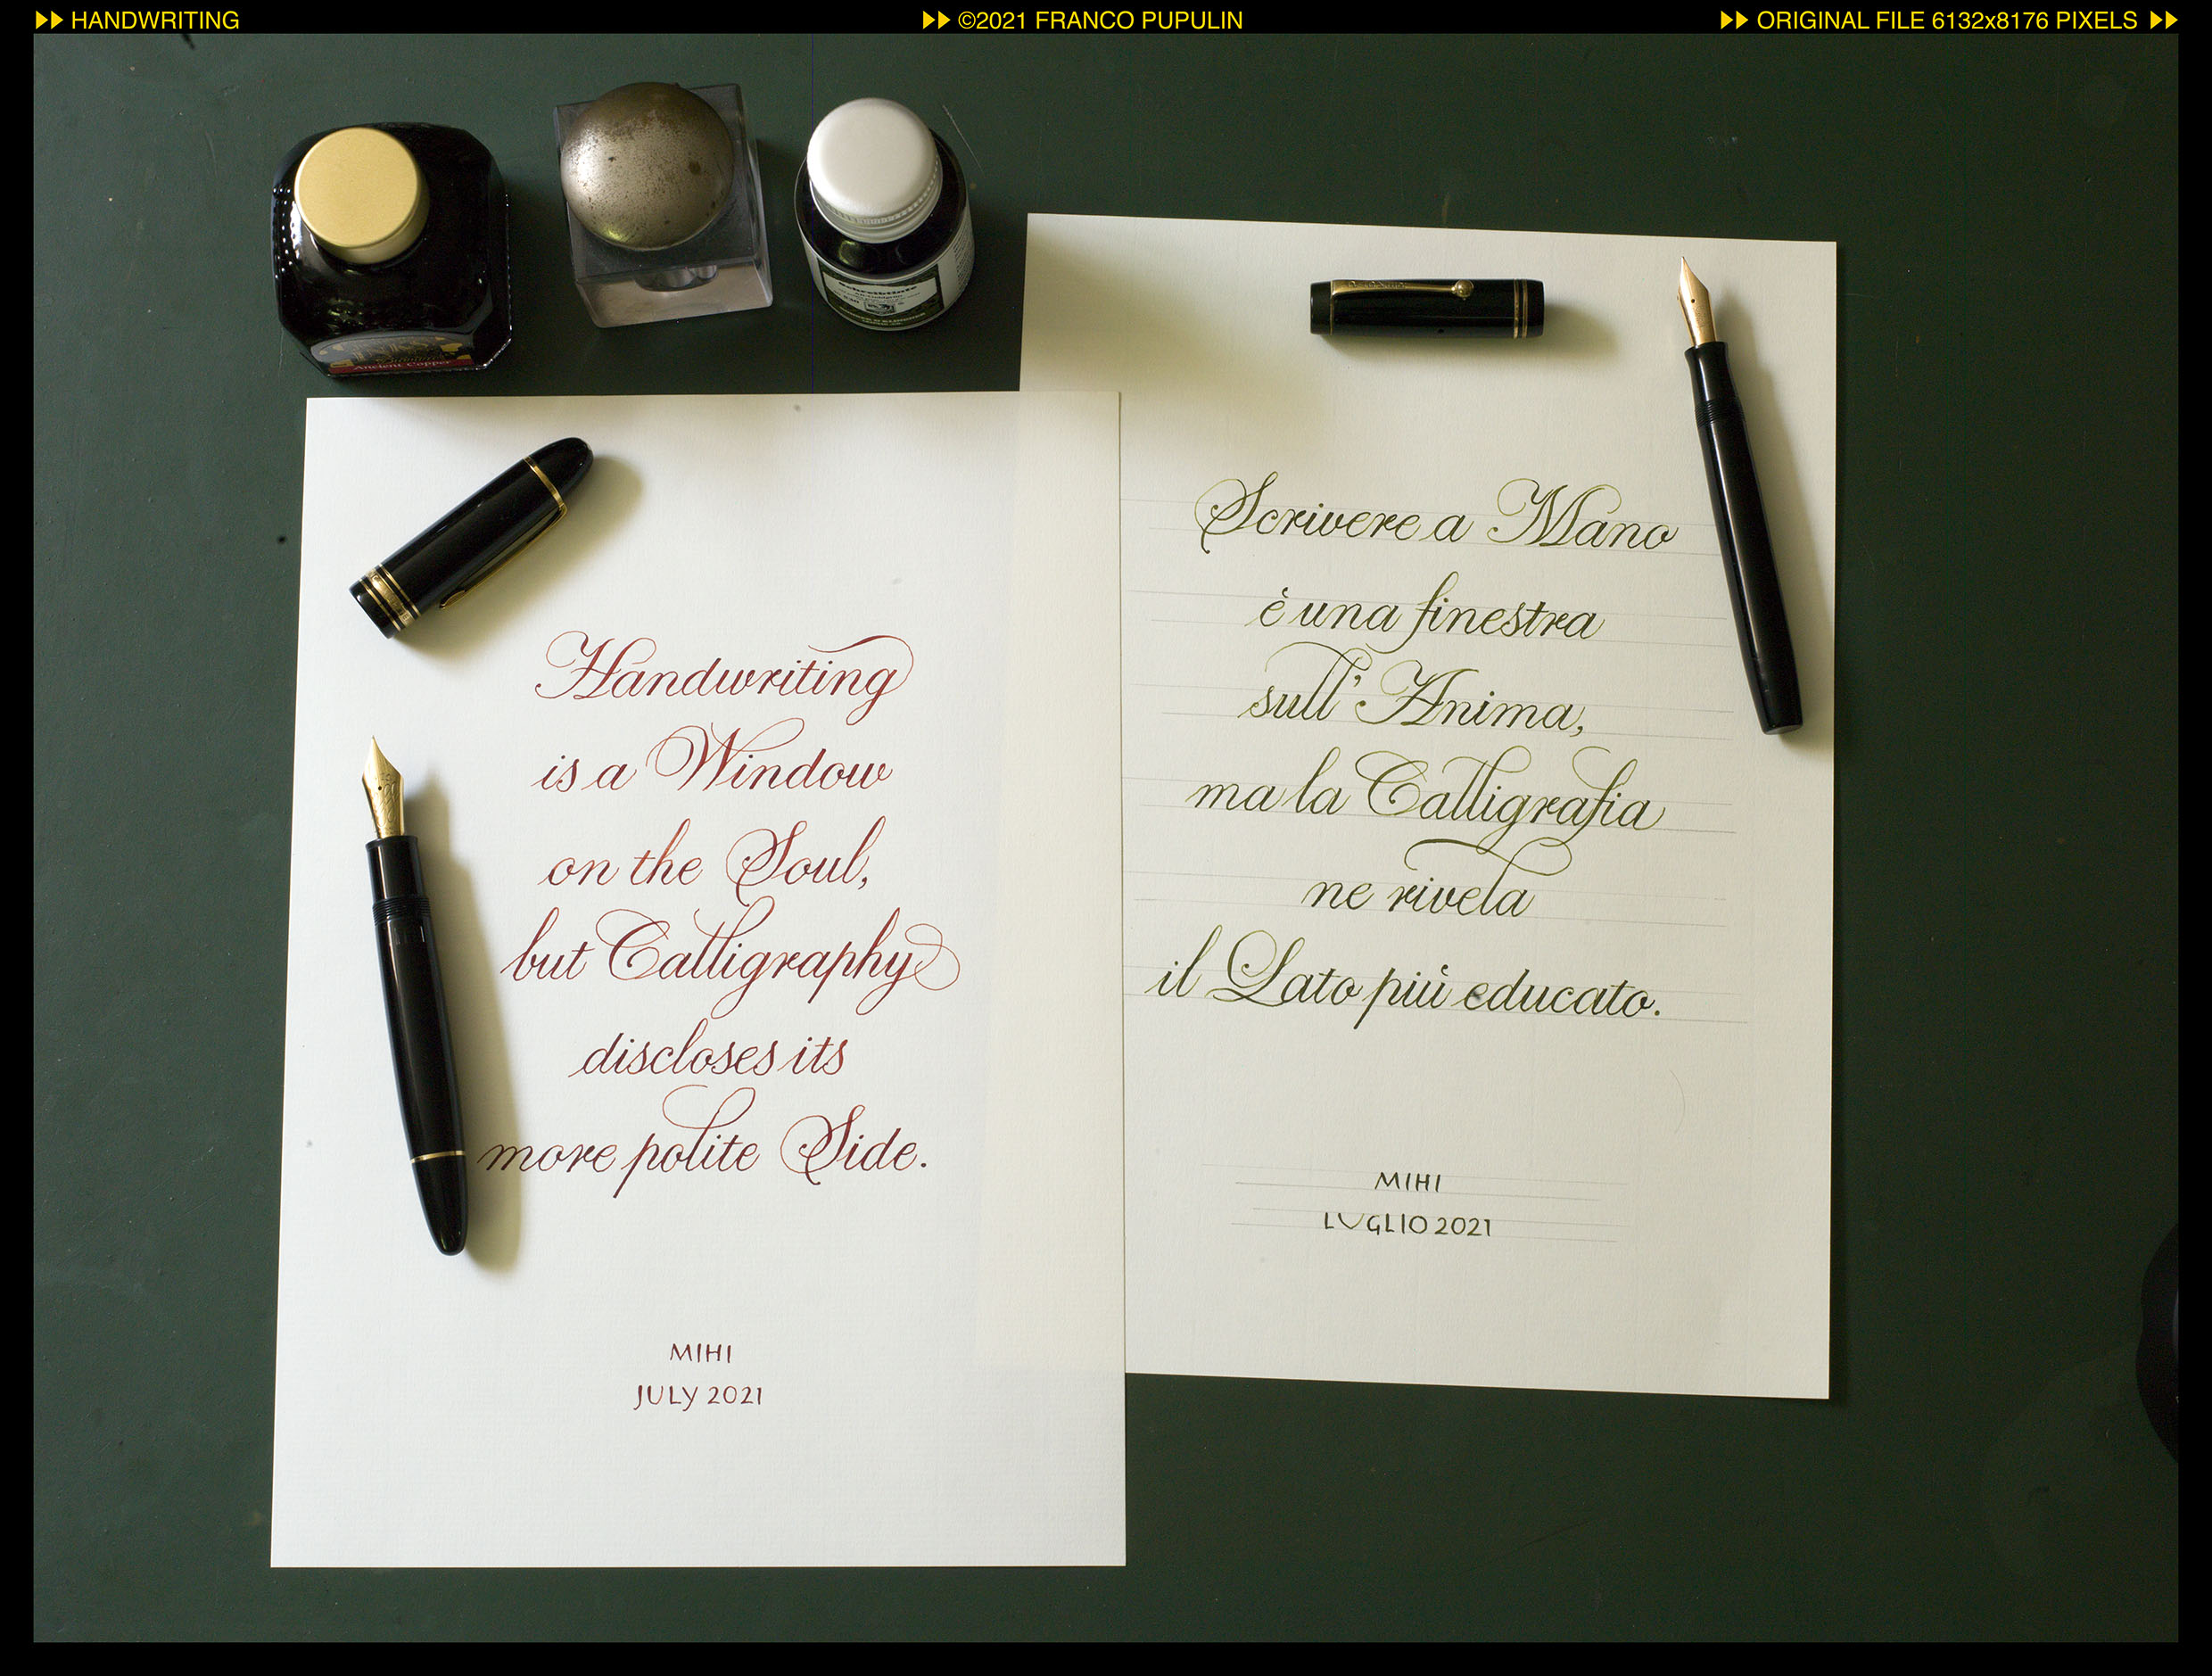 HANDWRITING
©2021 FRANCO PUPULIN
ORIGINAL FILE 6132x8176 PIXELS
Ancient Copper
Schreibtinte
Handwriting
is a Window
on the Soul,
but Calligraphy
discloses its
more polite Side.
MIHI
JULY 2021
Scrivere a Mano
è una finestra
sull' Anima,
ma la Calligrafia
ne rivela
il Lato più educato.
MIHI
LUGLIO 2021